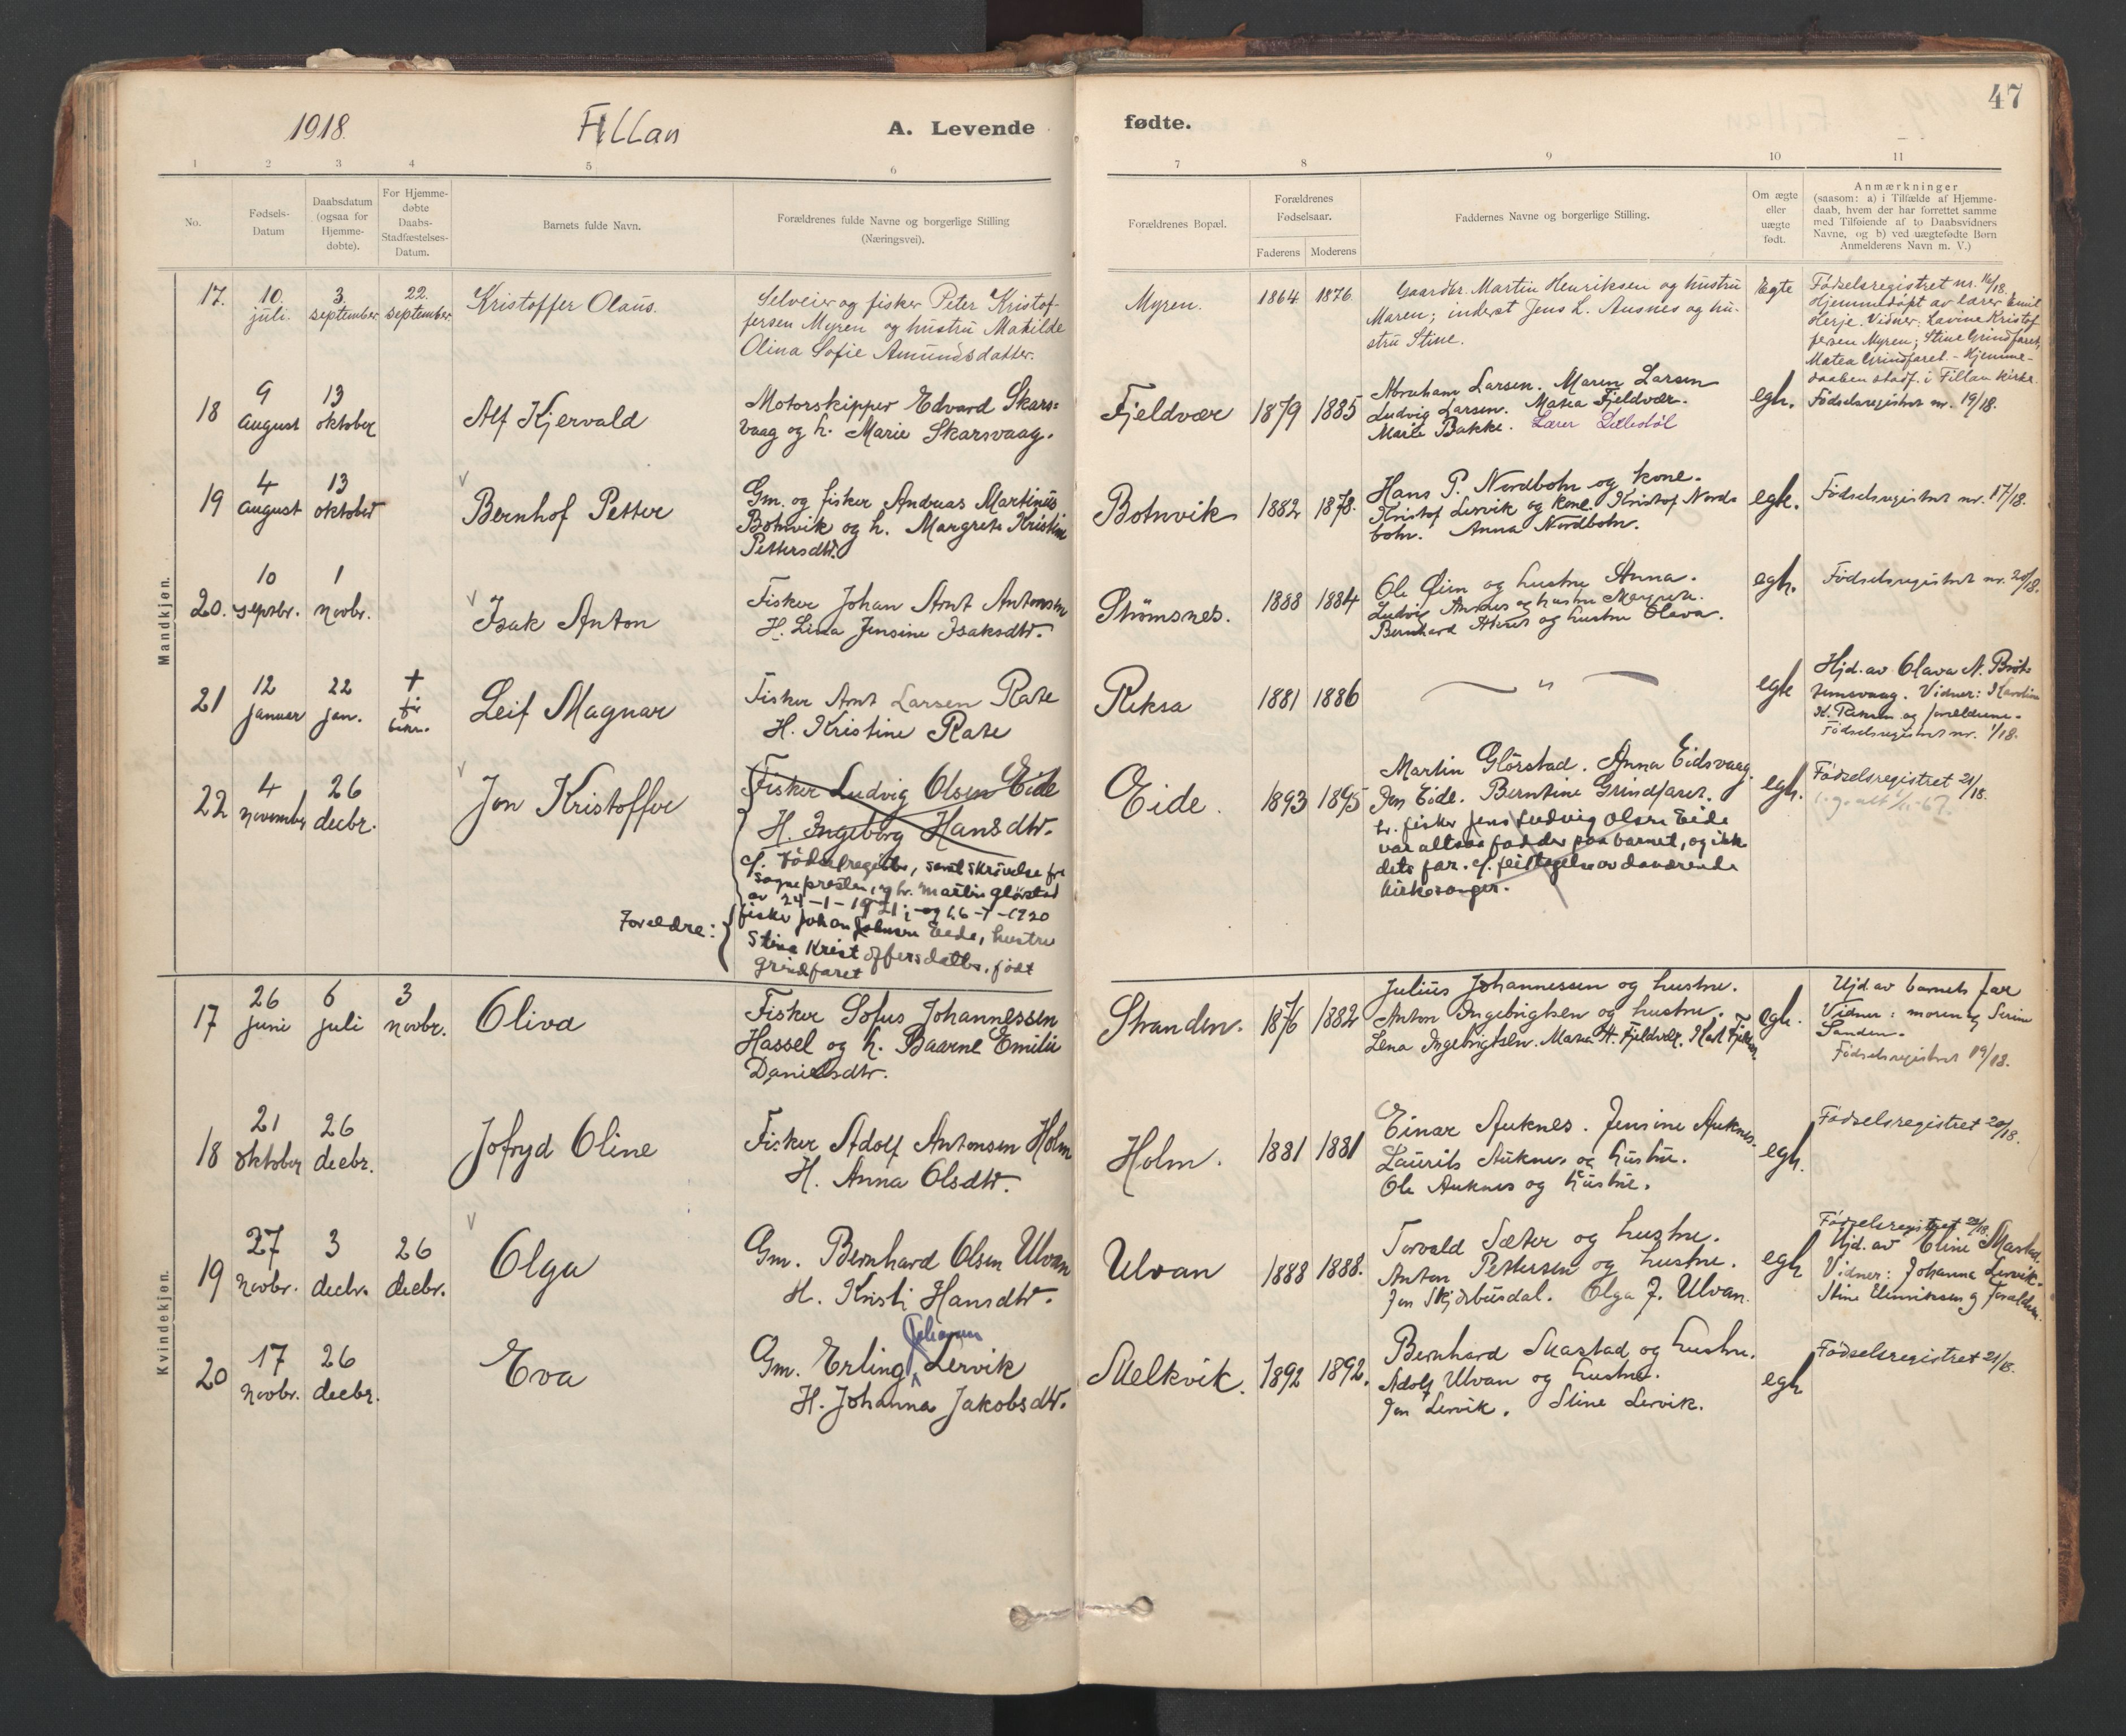 47
1918.
Fillan
A. Levende
fødte.
1 2 3 4 5 6 7 8 9 10 11
No.
Fødsels-
Datum
Daabsdatum
(ogsaa for
Hjemme-
døbte).
For Hjemme-
døbte
Daabs-
Stadfæstelses-
Datum.
Barnets fulde Navn.
Forældrenes fulde Navne og borgerlige Stilling
(Næringsvei).
Forældrenes Bopæl.
Forældrenes
Fødselsaar.
Faderens Moderens
Faddernes Navne og borgerlige Stilling.
Om ægte
eller
uægte
født.
Anmærkninger
(saasom: a) i Tilfælde af Hjemme-
daab, hvem der har forrettet samme
med Tilføiende af to Daabsvidners
Navne, og b) ved uægtefødte Børn
Anmelderens Navn m. V.)
Mandkjøn.
17.
10.
juli.
3.
september
22.
september
Kristoffer Olaus.
Selveier og fisker Peter Kristof-
fersen Myren og hustru Matilde
Olina Sofie Amundsdatter.
Myren.
1864 1876
Gaardbr. Martin Henriksen og hustru
Maren; inderst Jens L. Ausnes og hu-
stru Stine.
Ægte
Fødselsregistret nr. 16/18.
Hjemmedøpt av lærer Emil
Herje. Vidner: Lavine Kristof
fersen Myren; Stine Grindfaret,
Matea Grindfaret. - Hjemme-
daaben stadf. i Fillan kirke.
18
9
august
13
oktober
Alf Kjervald
Motorskipper Edvard Skars-
vaag og h. Marie Skarsvaag.
Fjeldvær
1879 1885
Abraham Larsen. Maren Larsen
Ludvig Larsen. Matea Fjeldvær.
Marie Bakke. Lærer Lillestøl
egte.
Fødselsregistret nr. 19/18.
19
4
august
13
oktober
Bernhof Petter
Gm. og fisker Andreas Martinus
Botnvik og h. Margrete Kristine
Pettersdtr.
Botnvik
1882 1878.
Hans P. Nordbotn og kone.
Kristof Lervik og kone. Kristof Nord-
botn. Anna Nordbotn.
egte.
Fødselsregistret nr. 17/18.
20.
10
septbr.
1
novbr.
Isak Anton
Fisker Johan Arnt Antonsen
H. Lina Jensine Isaksdtr.
Strømsnes.
1888 1884
Ole Øien og hustru Anna.
Ludvig Ausnes og hustru Margrete.
Bernhard Akset og hustru Olava.
egte.
Fødselsregistret nr. 20/18.
21
12
januar
22
jan.
+
før
bekr.
Leif Magnar
Fisker Arnt Larsen Rate
H. Kristine Rate
Reksa
1881 1886
"
egte
Hjd. av Olava N. Bröt-
temsvaag. Vidner: Karoline
K. Reksen og forældrene.
Fødselsregistret nr. 1/18.
22
4
november
26
decbr.
Jon Kristoffer
Fisker Ludvig Olsen Eide
H. Ingeborg Hansdtr.
cf. Fødselsregistr, samt skrivelse fra
sognepresten, og hr. Martin Glørstad
av 24-1-1921; og 26-7-1920
Forældre:
fisker Johan Johnsen Eide, hustru
Stina Kristoffersdatter, født
Grindfaret
Eide.
1893 1895
Martin Glørstad. Anna Eidsvaag.
Jon Eide. Berntine Grindfaret.
hr. fisker Jens Ludvig Olsen Eide
var altsaa fadder paa barnet, og ikke
dets far. cf. feiltagelse av daværende
kirkesanger.
egte.
Fødselsregistret 21/18.
Kvindekjøn.
17
26
juni
6
juli
3
novbr.
Olivd
Fisker Sofus Johannessen
Hassel og h. Baarne Emilie
Danielsdtr.
Stranden.
1876 1882
Julius Johannessen og hustru.
Anton Ingebrigtsen og hustru.
Lena Ingebrigtsen. Matea H. Fjeldvær.
egte.
Hjd. av barnets far
Vidner: moren og Serine
Sanden.
Fødselsregistret 19/18.
18
21
oktober
26
decbr.
Jofryd Oline
Fisker Adolf Antonsen Holm
H. Anna Olsdtr.
Holm.
1881 1881
Einar Auknes. Jensine Auknes.
Laurits Auknes og hustru.
Ole Auknes og hustru.
egte.
Fødselsregistret 20/18.
19
27
novbr.
3
decbr.
26
decbr.
Olga
Gm. Bernhard Olsen Ulvan
H. Kristi Hansdtr.
Ulvan
1888 1888.
Torvald Sæter og hustru.
Anton Pettersen og hustru.
Jon Skjærbusdal. Olga J. Ulvan.
egte
Fødselsregistret 22/18.
Hjd. av Eline Mastad.
Vidner: Johanna Lervik.
Stine Henriksen og forældrene.
20
17
novbr.
26
decbr.
Eva
Gm. Erling Johannes Lervik
H. Johanna Jakobsdtr.
Melkvik.
1892 1892.
Bernhard Mastad og hustru.
Adolf Ulvan og hustru.
Jon Lervik. Stine Lervik.
egte
Fødselsregistret 21/18.